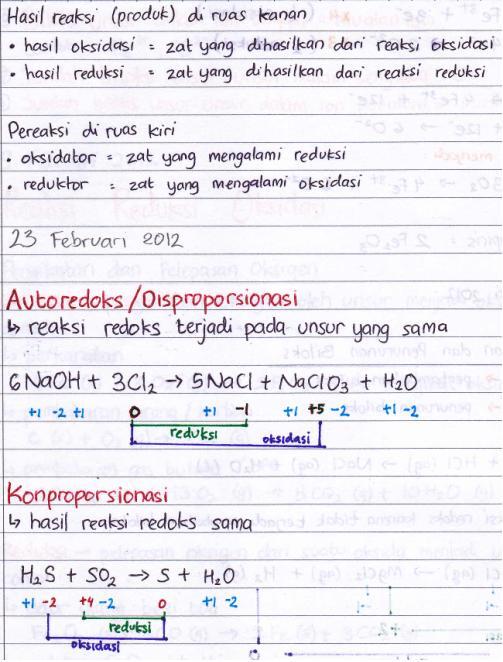 Hasil reaksi (produk) di ruas kanan
• hasil oksidasi = zat yang dihasilkan dari reaksi oksidasi
• hasil reduksi = zat yang dihasilkan dari reaksi reduksi
Pereaksi di ruas kiri
• oksidator = zat yang mengalami reduksi
• reduktor = zat yang mengalami oksidasi
23 Februari 2012
Autoredoks / Disproporsionasi
↳ reaksi redoks terjadi pada unsur yang sama
6 NaOH + 3Cl₂ → 5NaCl + NaClO₃ + H₂O
+1 -2 +1 0 +1 -1 +1 +5 -2 +1 -2
reduksi
oksidasi
Konproporsionasi
↳ hasil reaksi redoks sama
H₂S + SO₂ → S + H₂O
+1 -2 +4 -2 0 +1 -2
reduksi
oksidasi